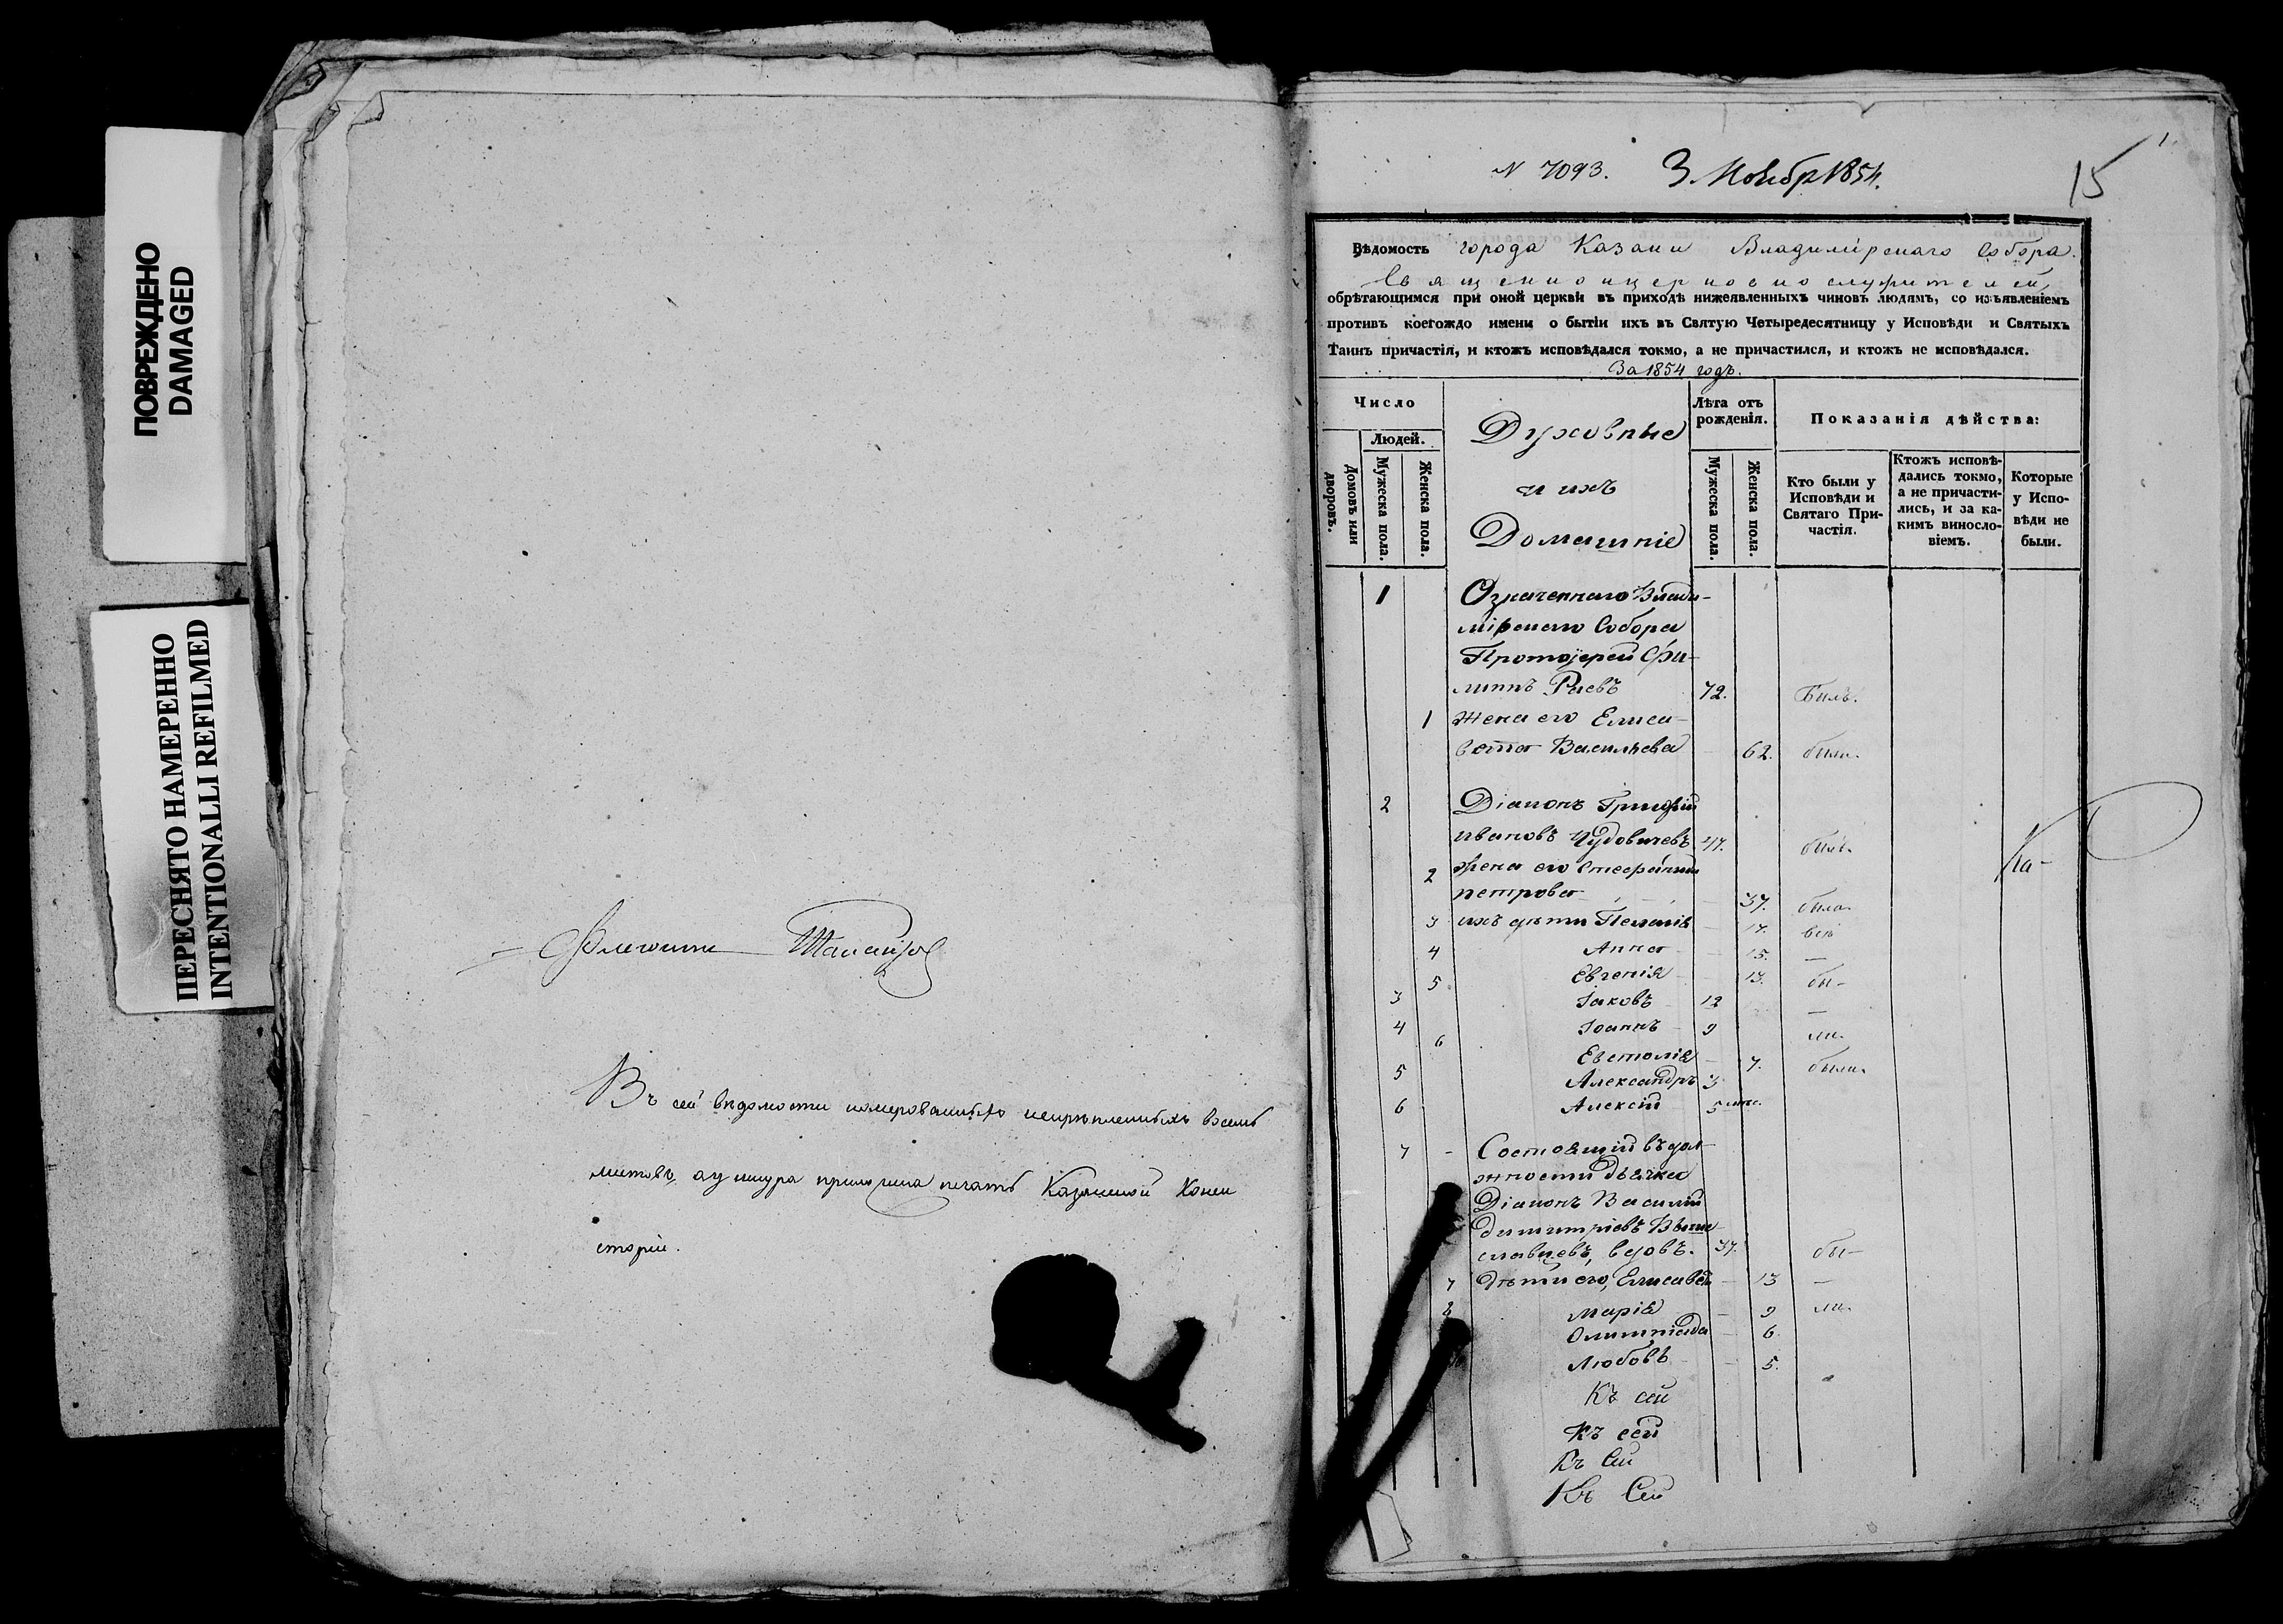 ПОВРЕЖДЕНО
DAMAGED
ПЕРЕСНЯТО НАМЕРЕННО
INTENTIONALLI REFILMED
Въ сей вѣдомости номерованныхъ неприпленныхъ восемь
листовъ, а у шнура приложена печать Казанской Конси
сторіи.
N 7093. 3 Ноябр 1854.
15
1.
Вѣдомость города Казани Владимірскаго Собора
Священноицерковнослужителей,
обрѣтающимся при оной церкви въ приходѣ нижеявленныхъ чиновъ людямъ, со изъявленіемъ
противъ коегождо имени о бытіи ихъ въ Святую Четыредесятницу у Исповѣди и Святыхъ
Таинъ причастія, и ктожъ исповѣдался токмо, а не причастился, и ктожъ не исповѣдался.
За 1854 годъ.
Число
Людей.
Домовъ или дворовъ.
Мужеска пола.
Женска пола.
Духовные
и ихъ
Домашніе
Лѣта отъ рожденія.
Мужеска пола.
Женска пола.
Показанія дѣйства:
Кто были у Исповѣди и Святаго Причастія.
Ктожъ исповѣдались токмо, а не причастились, и за какимъ винословіемъ.
Которые у Исповѣди не были.
1 Означеннаго Влади-
мірскаго Собора
Протоіерей Фи-
липпъ Раевъ 72. Былъ.
1 Жена его Елиса-
вета Васильева 62. была.
2 Діаконъ Григорій
Ивановъ Чудовичевъ 47. былъ.
Ка-
2 Жена его Стефанида
Петрова 37. была.
3 ихъ дѣти Пелагія 17. всѣ
4 Анна 15. —
5 Евгенія 13. бы-
3 Іаковъ 12 —
4 Іоаннъ 9 ли.
6 Евстолія 7. были.
5 Александръ 3
6 Алексій 5 мѣс.
7 - Состоящій въ дол-
жности Дьячка
Діаконъ Василій
Димитріевъ Выше-
славцевъ, вдовъ. 37. бы-
7 Дѣти его, Елисавета 13 —
8 Марія 9 ли.
Олимпіада 6.
Любовь 5.
Къ сей
Къ сей
Къ Сей
Къ Сей